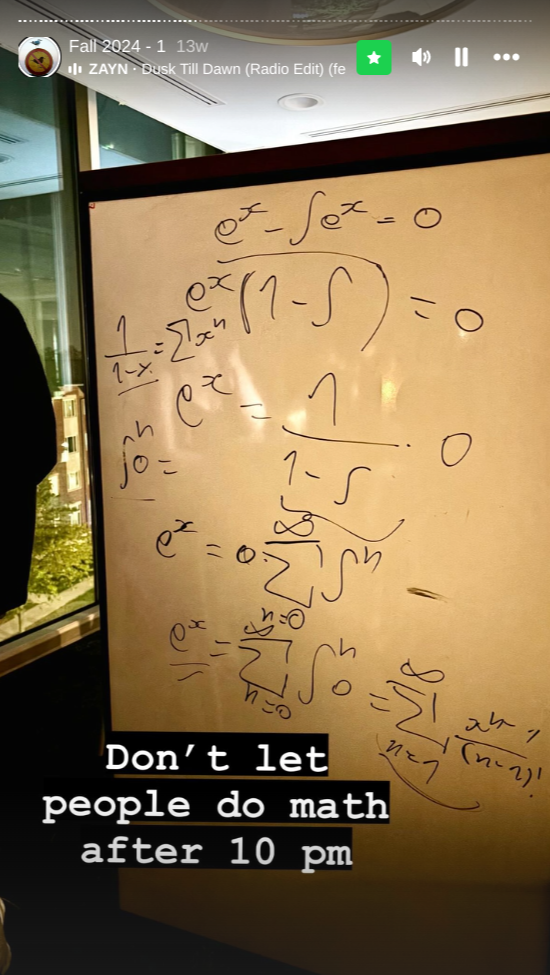 Fall 2024 - 1 13w
ZAYN · Dusk Till Dawn (Radio Edit) (fe
e^x - ∫e^x = 0
e^x (1 - ∫) = 0
1/(1-x) = ∑x^n
e^x = 1/(1-∫) · 0
∫^n 0 =
e^x = 0·∑_{n=0}^∞ ∫^n
e^x = ∑_{n=0}^∞ ∫^n 0 = ∑_{n=1}^∞ x^{n-1}/(n-1)!
Don't let
people do math
after 10 pm